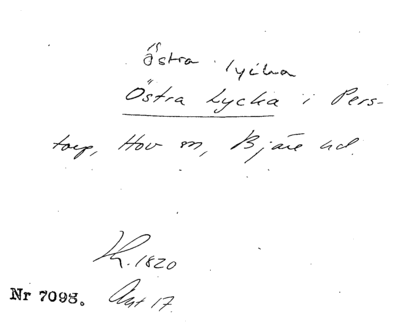 östra lycka
Östra Lycka i Pers-
torp, Hov sn, Bjäre hd.
Lk. 1820
Nr 7095. Akt 17.